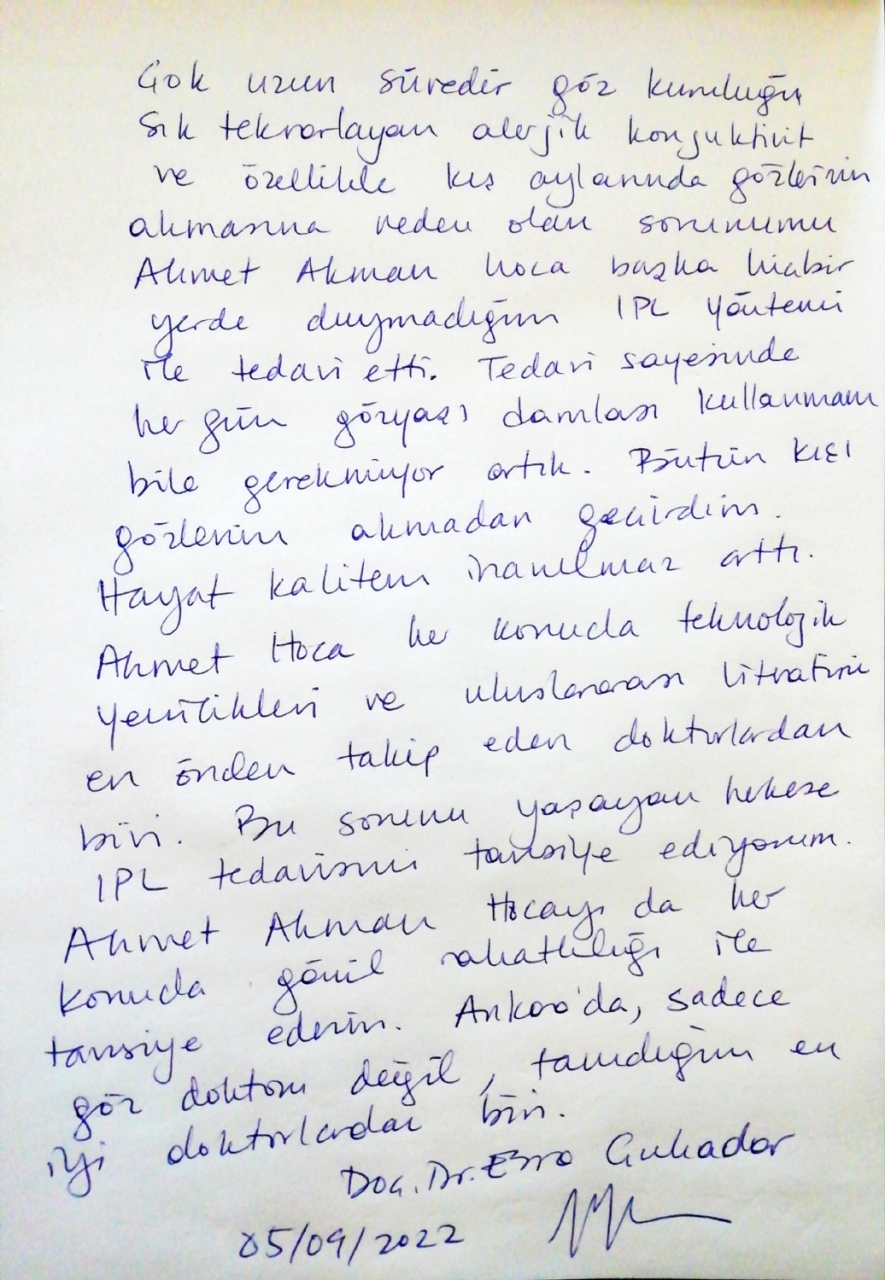 Çok uzun süredir göz kuruluğu
sık tekrarlayan alerjik konjuktivit
ve özellikle kış aylarında gözlerimin
akmasına neden olan sorunumu
Ahmet Akman hoca başka hiçbir
yerde duymadığım IPL yöntemi
ile tedavi etti. Tedavi sayesinde
her gün gözyaşı damlası kullanmam
bile gerekmiyor artık. Bütün kışı
gözlerim akmadan geçirdim.
Hayat kalitem inanılmaz arttı.
Ahmet Hoca her konuda teknolojik
yenilikleri ve uluslararası literatürü
en önden takip eden doktorlardan
biri. Bu sorunu yaşayan herkese
IPL tedavisini tavsiye ediyorum.
Ahmet Akman Hocayı da her
konuda gönül rahatlığı ile
tavsiye ederim. Ankara'da, sadece
göz doktoru değil, tanıdığım en
iyi doktorlardan biri.
Doç. Dr. Esra
05/09/2022